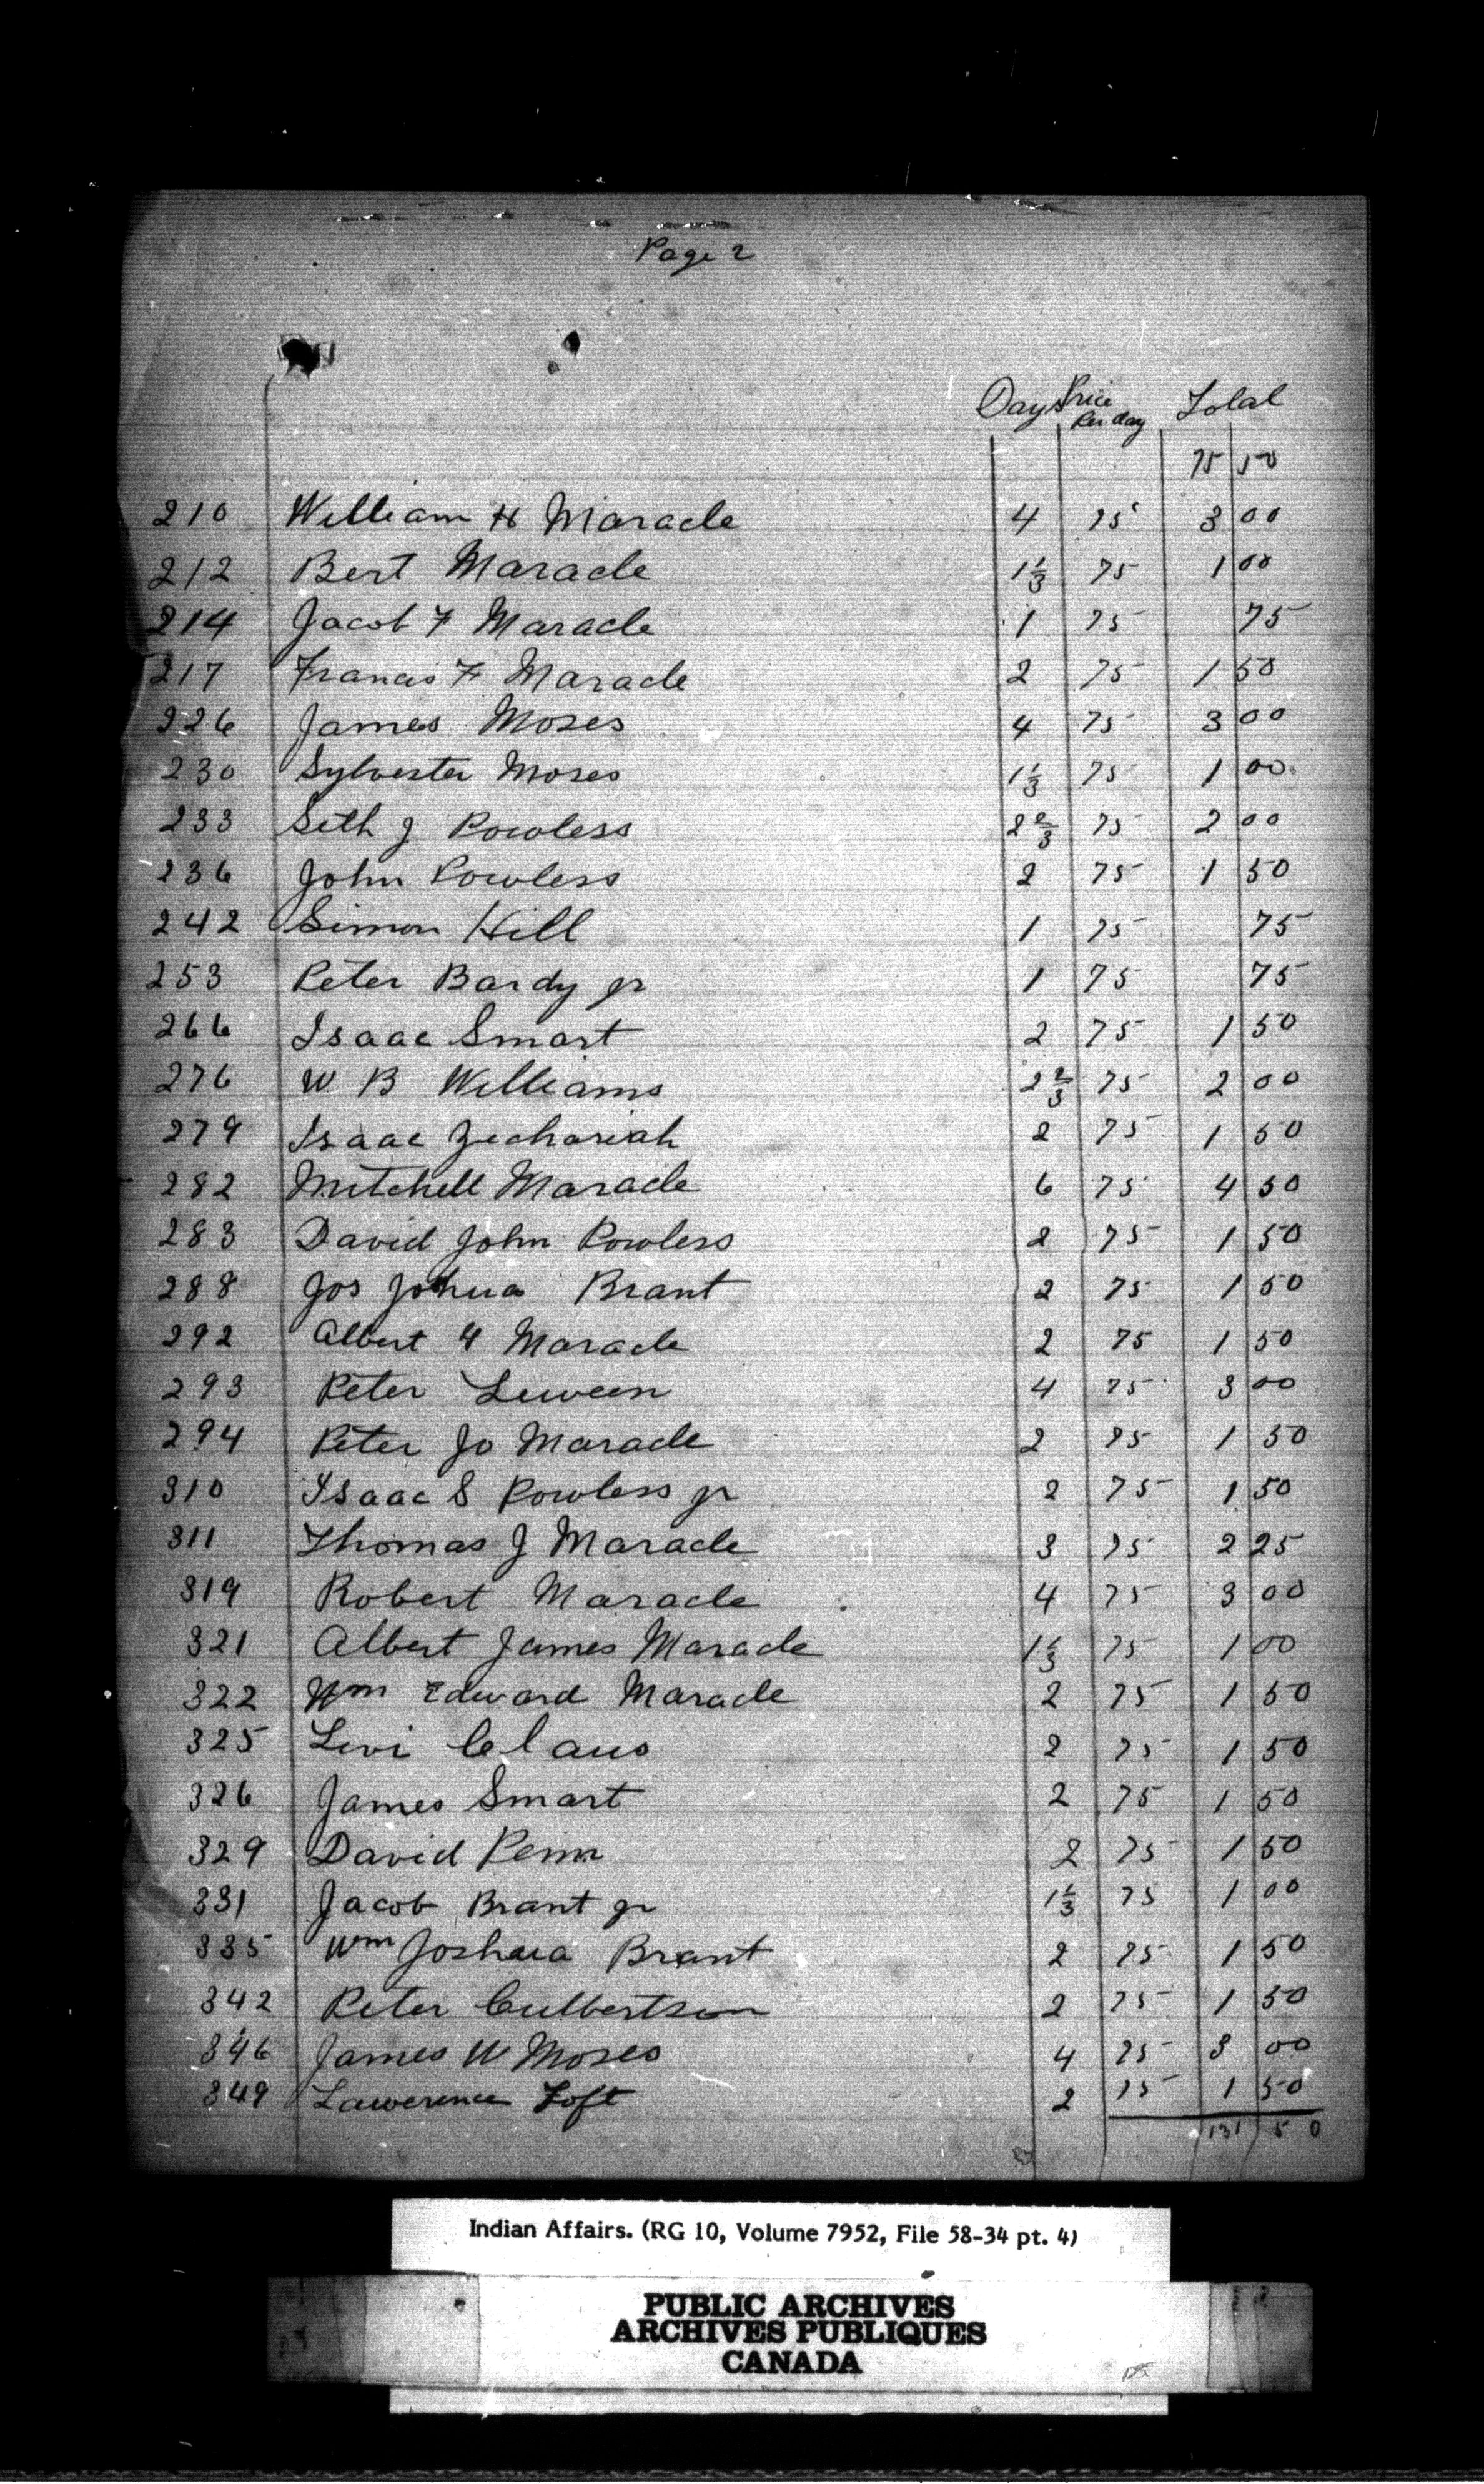 Page 2
Days Price Per day Total
75 50
210 William H Maracle 4 75 3 00
212 Bert Maracle 1 1/3 75 1 00
214 Jacob F Maracle 1 75 75
217 Francis F Maracle 2 75 1 50
226 James Moses 4 75 3 00
230 Sylvester Moses 1 1/3 75 1 00
233 Seth J Powless 2 2/3 75 2 00
236 John Powless 2 75 1 50
242 Simon Hill 1 75 75
253 Peter Bardy jr 1 75 75
266 Isaac Smart 2 75 1 50
276 W B Williams 2 2/3 75 2 00
279 Isaac Zechariah 2 75 1 50
282 Mitchell Maracle 6 75 4 50
283 David John Powless 2 75 1 50
288 Jos Joshua Brant 2 75 1 50
292 Albert 4 Maracle 2 75 1 50
293 Peter Leween 4 75 3 00
294 Peter Jo Maracle 2 75 1 50
310 Isaac S Powless jr 2 75 1 50
311 Thomas J Maracle 3 75 2 25
319 Robert Maracle 4 75 3 00
321 Albert James Maracle 1 1/3 75 1 00
322 Wm Edward Maracle 2 75 1 50
325 Levi Claus 2 75 1 50
326 James Smart 2 75 1 50
329 David Penn 2 75 1 50
331 Jacob Brant jr 1 1/3 75 1 00
335 Wm Joshua Brant 2 75 1 50
342 Peter Culbertson 2 75 1 50
346 James W Moses 4 75 3 00
349 Lawerence Loft 2 75 1 50
131 50
Indian Affairs. (RG 10, Volume 7952, File 58-34 pt. 4)
PUBLIC ARCHIVES
ARCHIVES PUBLIQUES
CANADA